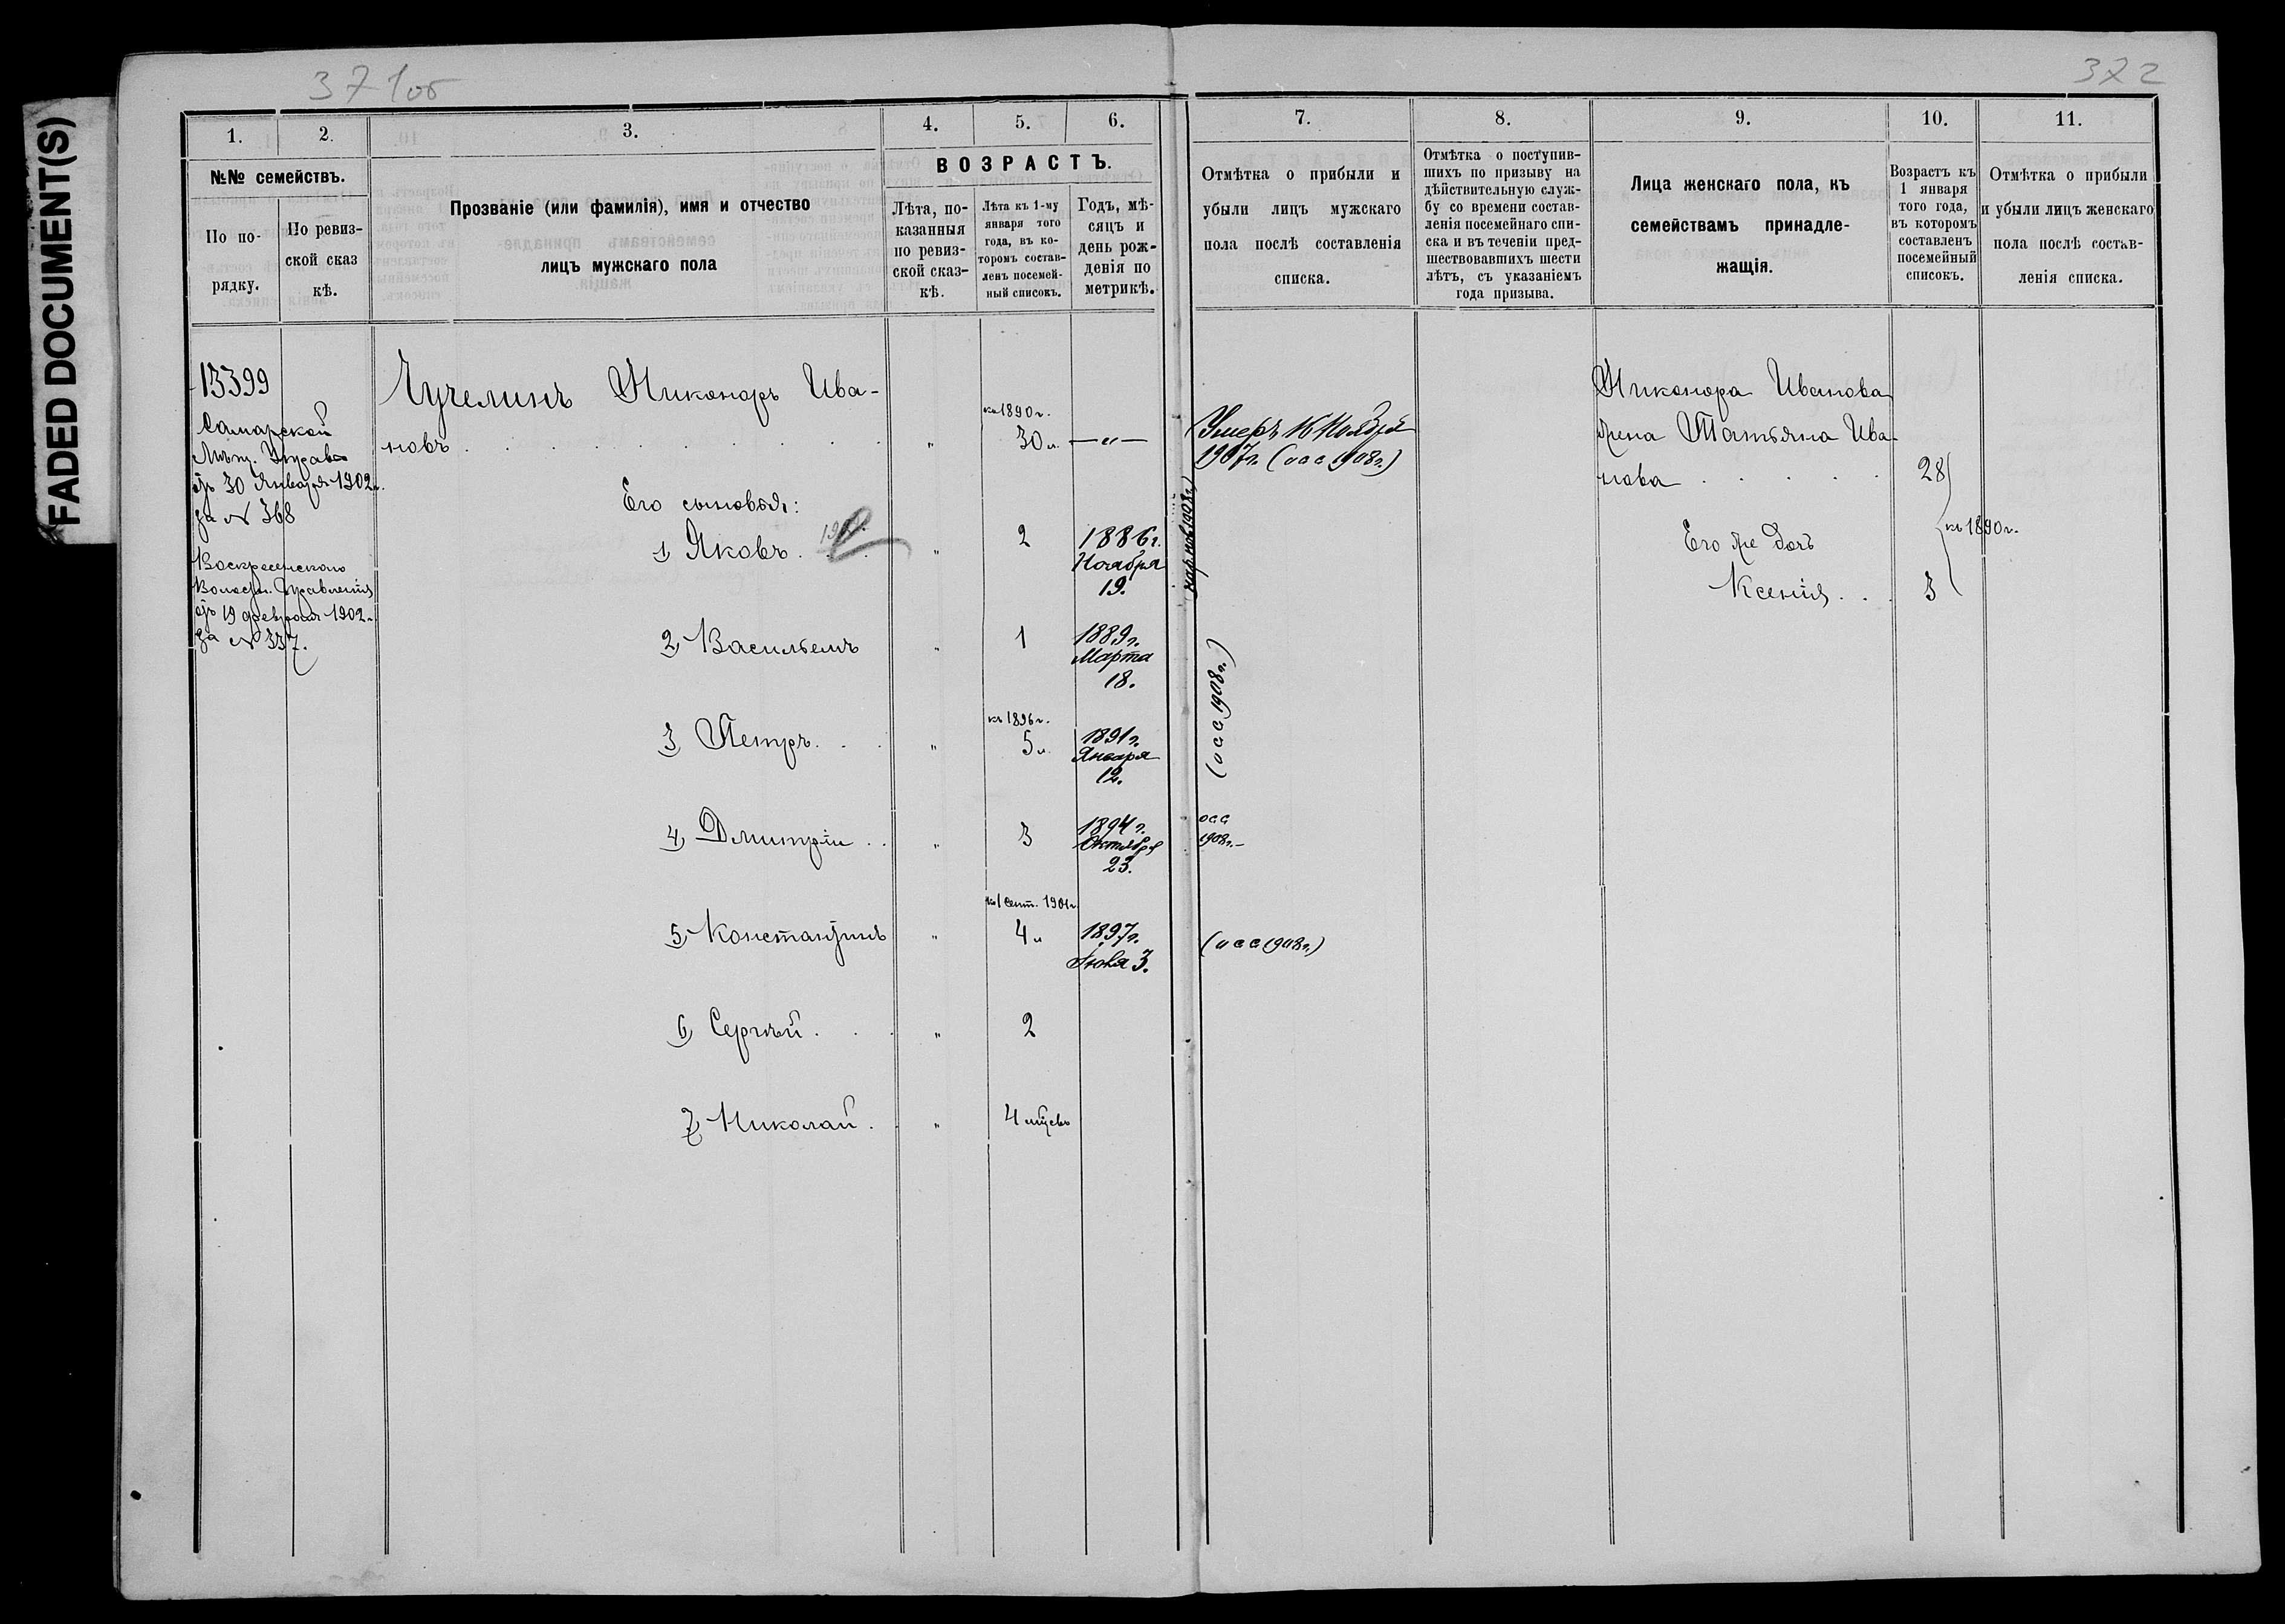 FADED DOCUMENT(S)
371об
372
1.
2.
3.
4.
5.
6.
7.
8.
9.
10.
11.
№№ семействъ.
По по-
рядку.
По ревиз-
ской сказ
кѣ.
Прозваніе (или фамилія), имя и отчество
лицъ мужскаго пола
ВОЗРАСТЪ.
Лѣта, по-
казанныя
по ревиз-
ской сказ-
кѣ.
Лѣта къ 1-му
января того
года, въ ко-
торомъ состав-
ленъ посемей-
ный списокъ.
Годъ, мѣ-
сяцъ и
день рож-
денія по
метрикѣ.
Отмѣтка о прибыли и
убыли лицъ мужскаго
пола послѣ составленія
списка.
Отмѣтка о поступив-
шихъ по призыву на
дѣйствительную служ-
бу со времени состав-
ленія посемейнаго спи-
ска и въ теченіи пред-
шествовавшихъ шести
лѣтъ, съ указаніемъ
года призыва.
Лица женскаго пола, къ
семействамъ принадле-
жащія.
Возрастъ къ
1 января
того года,
въ которомъ
составленъ
посемейный
списокъ.
Отмѣтка о прибыли
и убыли лицъ женскаго
пола послѣ состав-
ленія списка.
13399
Самарской
Мѣщ. Управ
отъ 30 Января 1902г.
за № 368
Воскресенского
Волостн. Правленія
отъ 19 февраля 1902г.
за № 337.
Чучелинъ Никоноръ Ива-
новъ
къ 1890г.
" 30 л. —"—
Умеръ 16 Ноября
1907г. (осс 1908г.)
Его сыновья:
1) Яковъ . " 2 1886г.
Ноября
19.
2) Васильемъ " 1 1889г.
Марта
18.
(осс 1908г.)
къ 1896г.
3) Петръ . . . " 5 л. 1891г.
Января
12.
4) Дмитрій . . " 3 1894г.
Октября
23.
осс
1908г.
къ 1 Сент. 1901г.
5) Константинъ " 4 л 1897г.
Іюля 3.
(осс 1908г.)
6) Сергѣй . . . " 2
7) Николай . " 4 мѣсяц
Никонора Иванова
жена Татьяна Ива-
нова . . . . . 28
къ 1890г.
Его же дочь
Ксенія . . . 3